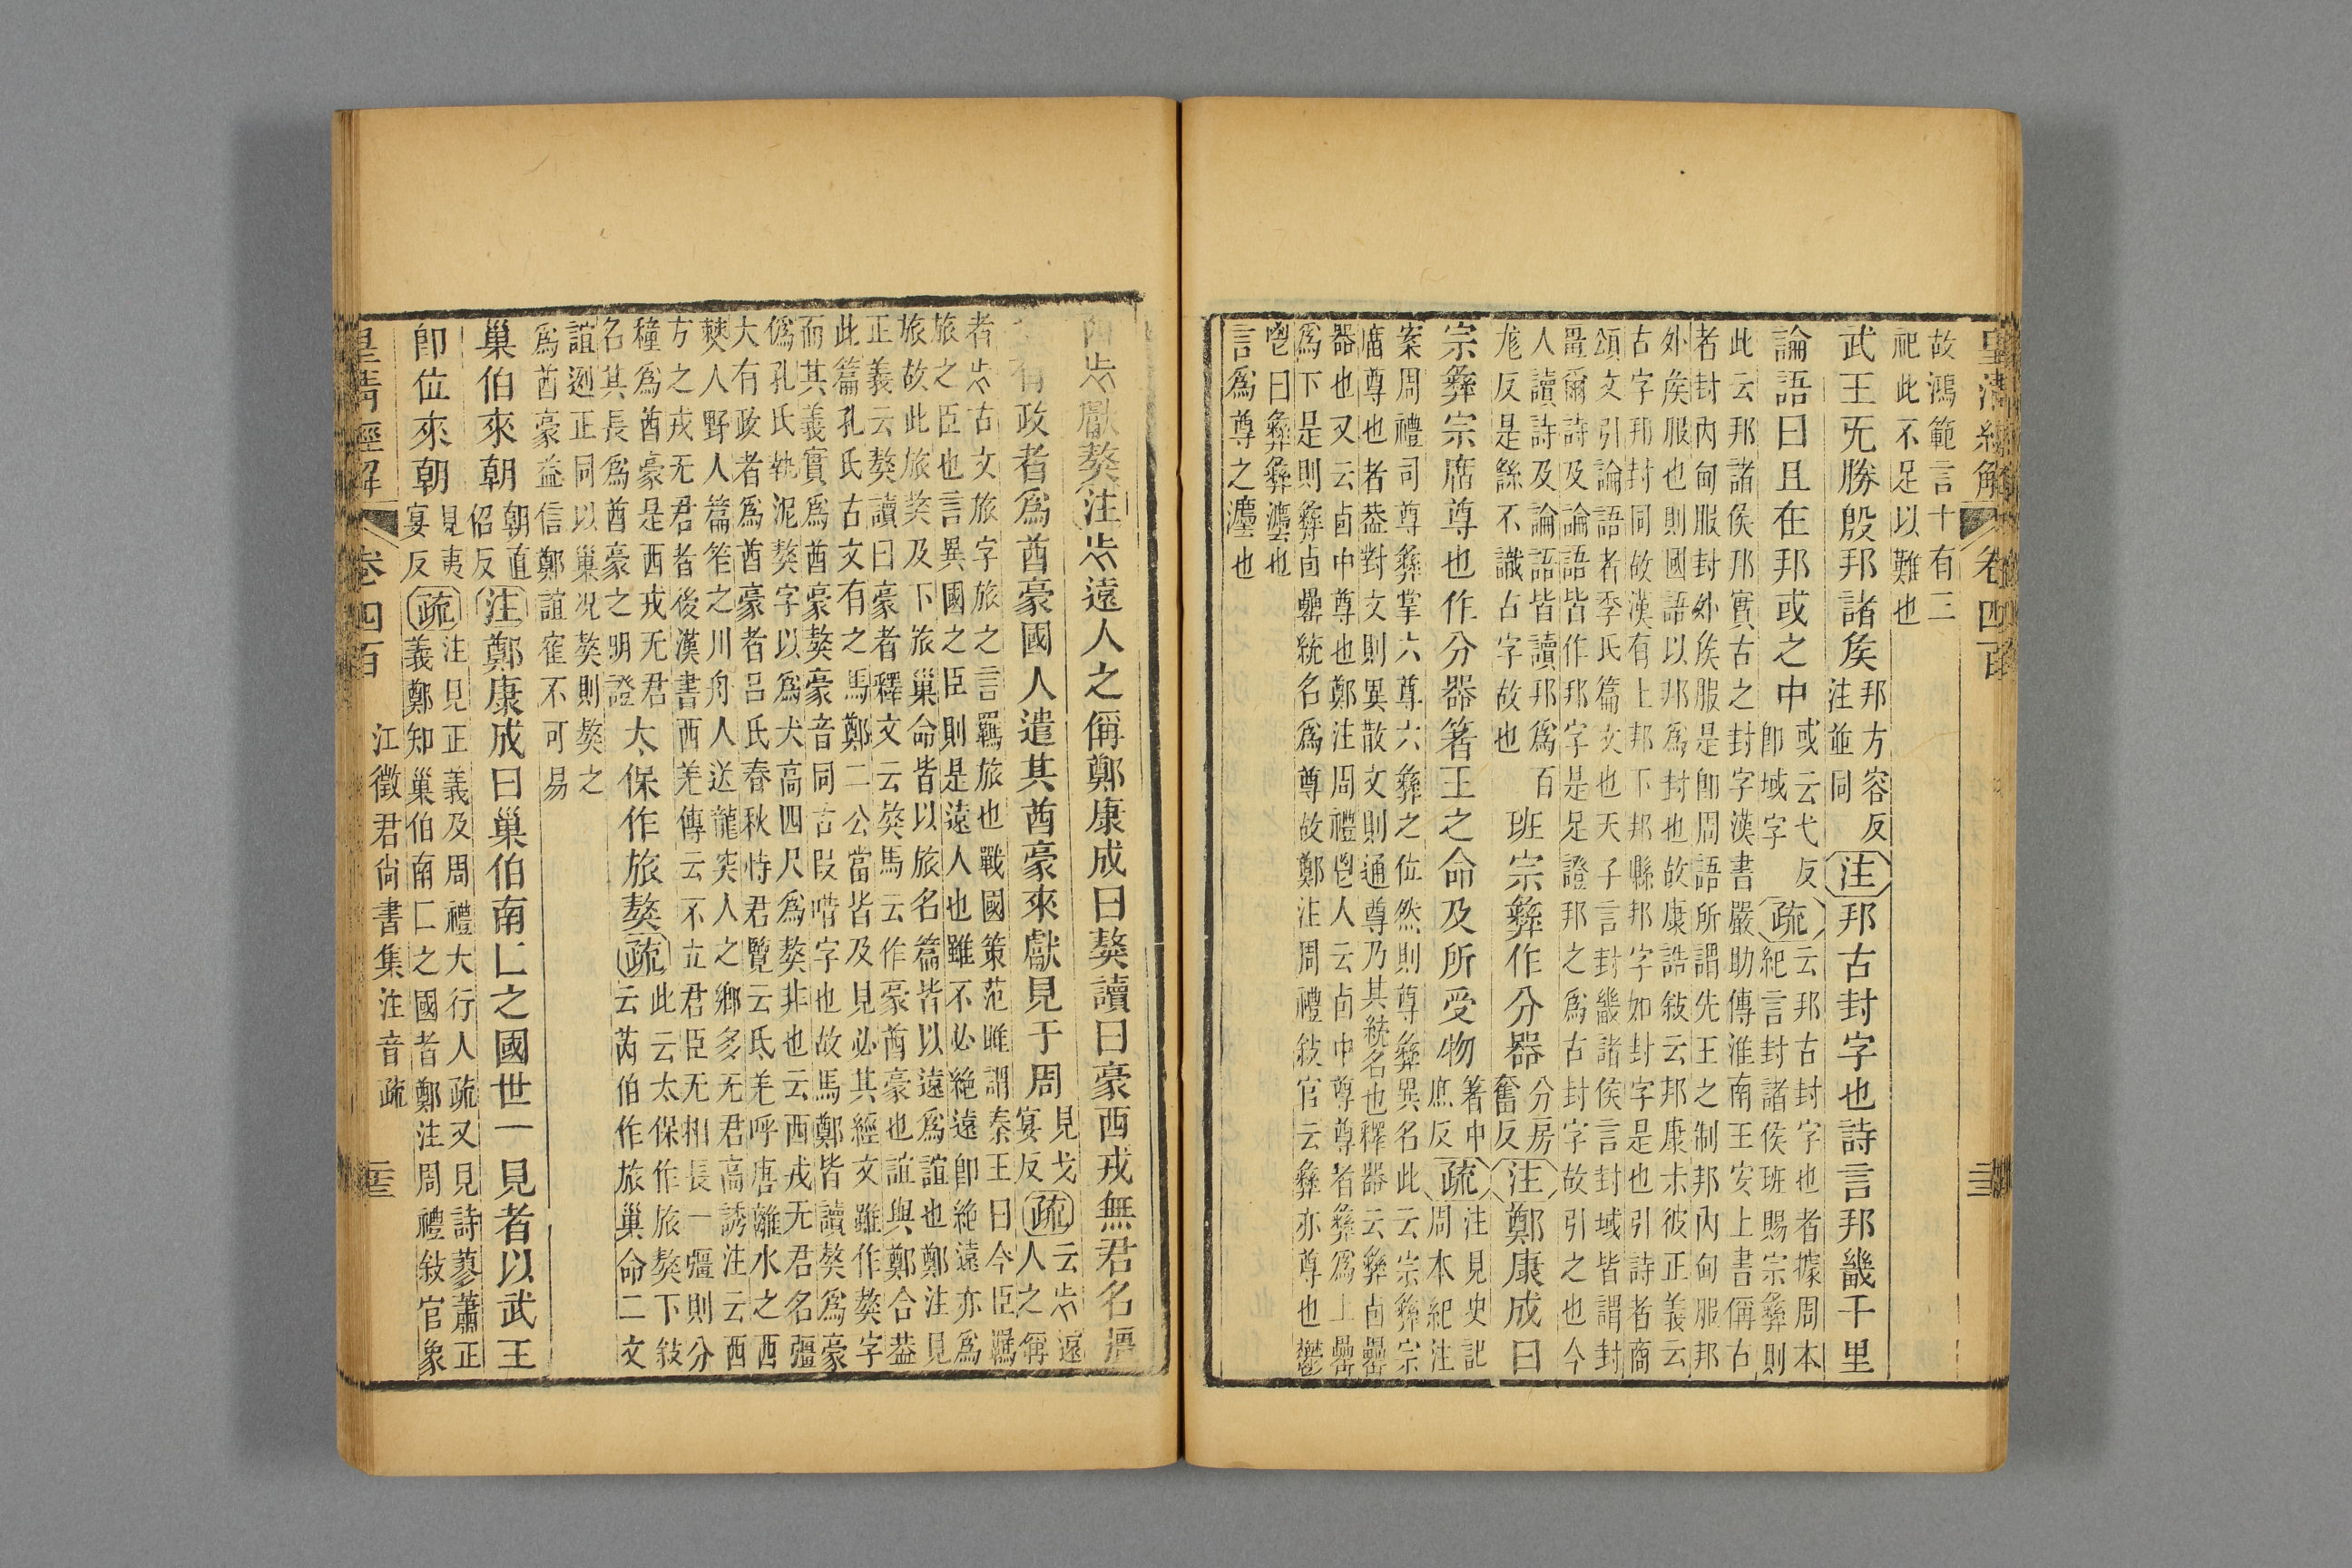 皇清經解　卷四百　三
故鴻範言十有三
祀此不足以難也
武王旡勝殷邦諸矦
邦方容反
注並同
注邦古封字也詩言邦畿千里
論語曰且在邦或之中
或云弋反
即域字
疏
云邦古封字也者據周本
紀言封諸侯班賜宗彝則
此云邦諸侯邦實古之封字漢書嚴助傳淮南王安上書偁古
者封內甸服封外矦服是卽周語所謂先王之制邦內甸服邦
外矦服也則國語以邦爲封也故康誥敍云邦康未彼正義云
古字邦封同故漢有上邦下邦縣邦字如封字是也引詩者商
頌文引論語者季氏篇文也天子言封畿諸侯言封域皆謂封
畺爾詩及論語皆作邦字是足證邦之爲古封字故引之也今
人讀詩及論語皆讀邦爲百
尨反是繇不識古字故也
班宗彝作分器
分房
奮反
注鄭康成曰
宗彝宗庿尊也作分器箸王之命及所受物
著中
庶反
疏
注見史記
周本紀注
案周禮司尊彝掌六尊六彝之位然則尊彝異名此云宗彝宗
庿尊也者葢對文則異散文則通尊乃其統名也釋器云彝卣罍
器也又云卣中尊也鄭注周禮鬯人云卣中尊尊者彝爲上罍
爲下是則彝卣罍統名爲尊故鄭注周禮敍官云彝亦尊也鬱
鬯曰彝彝灋也
言爲尊之灋也
西㫊獻獒注㫊遠人之偁鄭康成曰獒讀曰豪西戎無君名彊
有政者爲酋豪國人遣其酋豪來獻見于周
見戈
宴反
疏
云㫊遠
人之偁
者㫊古文旅字旅之言羈旅也戰國策范雎謂秦王曰今臣羈
旅之臣也言異國之臣則是遠人也雖不必絶遠卽絶遠亦爲
旅故此旅獒及下旅巢命皆以旅名篇皆以遠爲誼也鄭注見
正義云獒讀曰豪者釋文云獒馬云作豪酋豪也誼與鄭合葢
此篇孔氏古文有之馬鄭二公當皆及見必其經文雖作獒字
而其義實爲酋豪獒豪音同古叚借字也故馬鄭皆讀獒爲豪
僞孔氏執泥獒字以爲犬高四尺爲獒非也云西戎无君名彊
大有政者爲酋豪者呂氏春秋恃君覽云氐羌呼唐離水之西
僰人野人篇笮之川舟人送龍突人之鄉多无君高誘注云西
方之戎无君者後漢書西羌傳云不立君臣无相長一彊則分
種爲酋豪是西戎无君
名其長爲酋豪之明證
太保作旅獒
疏
此云太保作旅獒下敍
云芮伯作旅巢命二文
誼迥正同以巢况獒則獒之
爲酋豪益信鄭誼寉不可易
巢伯來朝
朝直
侶反
注鄭康成曰巢伯南匚之國世一見者以武王
卽位來朝
見夷
宴反
疏
注見正義及周禮大行人疏又見詩蓼蕭正
義鄭知巢伯南匚之國者鄭注周禮敍官象
皇清經解　卷四百　江徵君尙書集注音疏　三